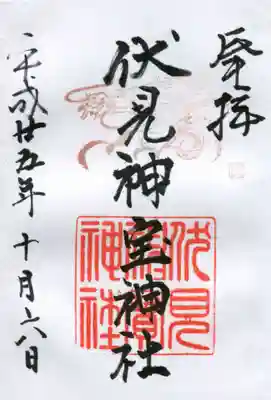 登拝
伏見神宝神社
平成廿五年 十月六日
伏見
神寶
神社